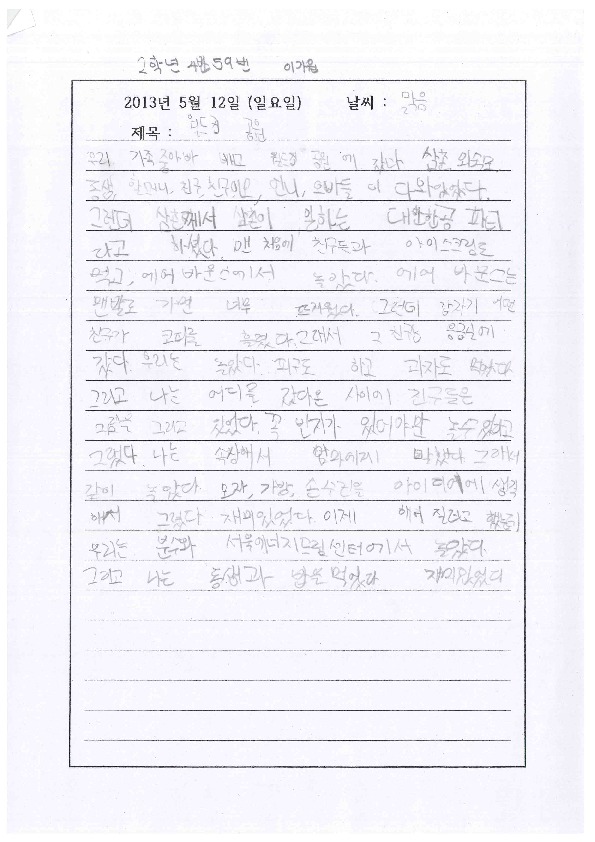 2학년 4반 59번 이가원
2013년 5월 12일 (일요일) 날씨 : 맑음
제목 : 월드컵 공원
우리 가족중아빠 빼고 월드컵 공원에 갔다 삼촌, 외숙모
동생, 할머니, 친구, 언니, 오빠들 이 다와있었다.
그런데 삼촌께서 삼촌이 일하는 대한항공 파티
라고 하셨다. 맨 처음에 친구들과 아이스크림도
먹고, 에어바운스에서 놀았다. 에어 바운스는
맨발로 가면 너무 뜨거웠다. 그런데 갑자기 어떤
친구가 코피를 흘렸다. 그래서 그 친구는 응급실에
갔다. 우리는 놀았다. 피구도 하고 과자도 먹었다
그리고 나는 어디를 갔다온 사이에 친구들은
그림을 그리고 있었다. 꼭 반지가 있어야만 놀수있다고
그랬다. 나는 속상해서 엄마에게 말했다. 그래서
같이 놀았다. 모자, 가방, 손수건을 아이디어에 생각
해서 그렸다. 재미있었다. 이제 해어 질려고
우리는 분수와 서울에너지드림센터에서 놀았다.
그리고 나는 동생과 밥을 먹었다 재미있었다